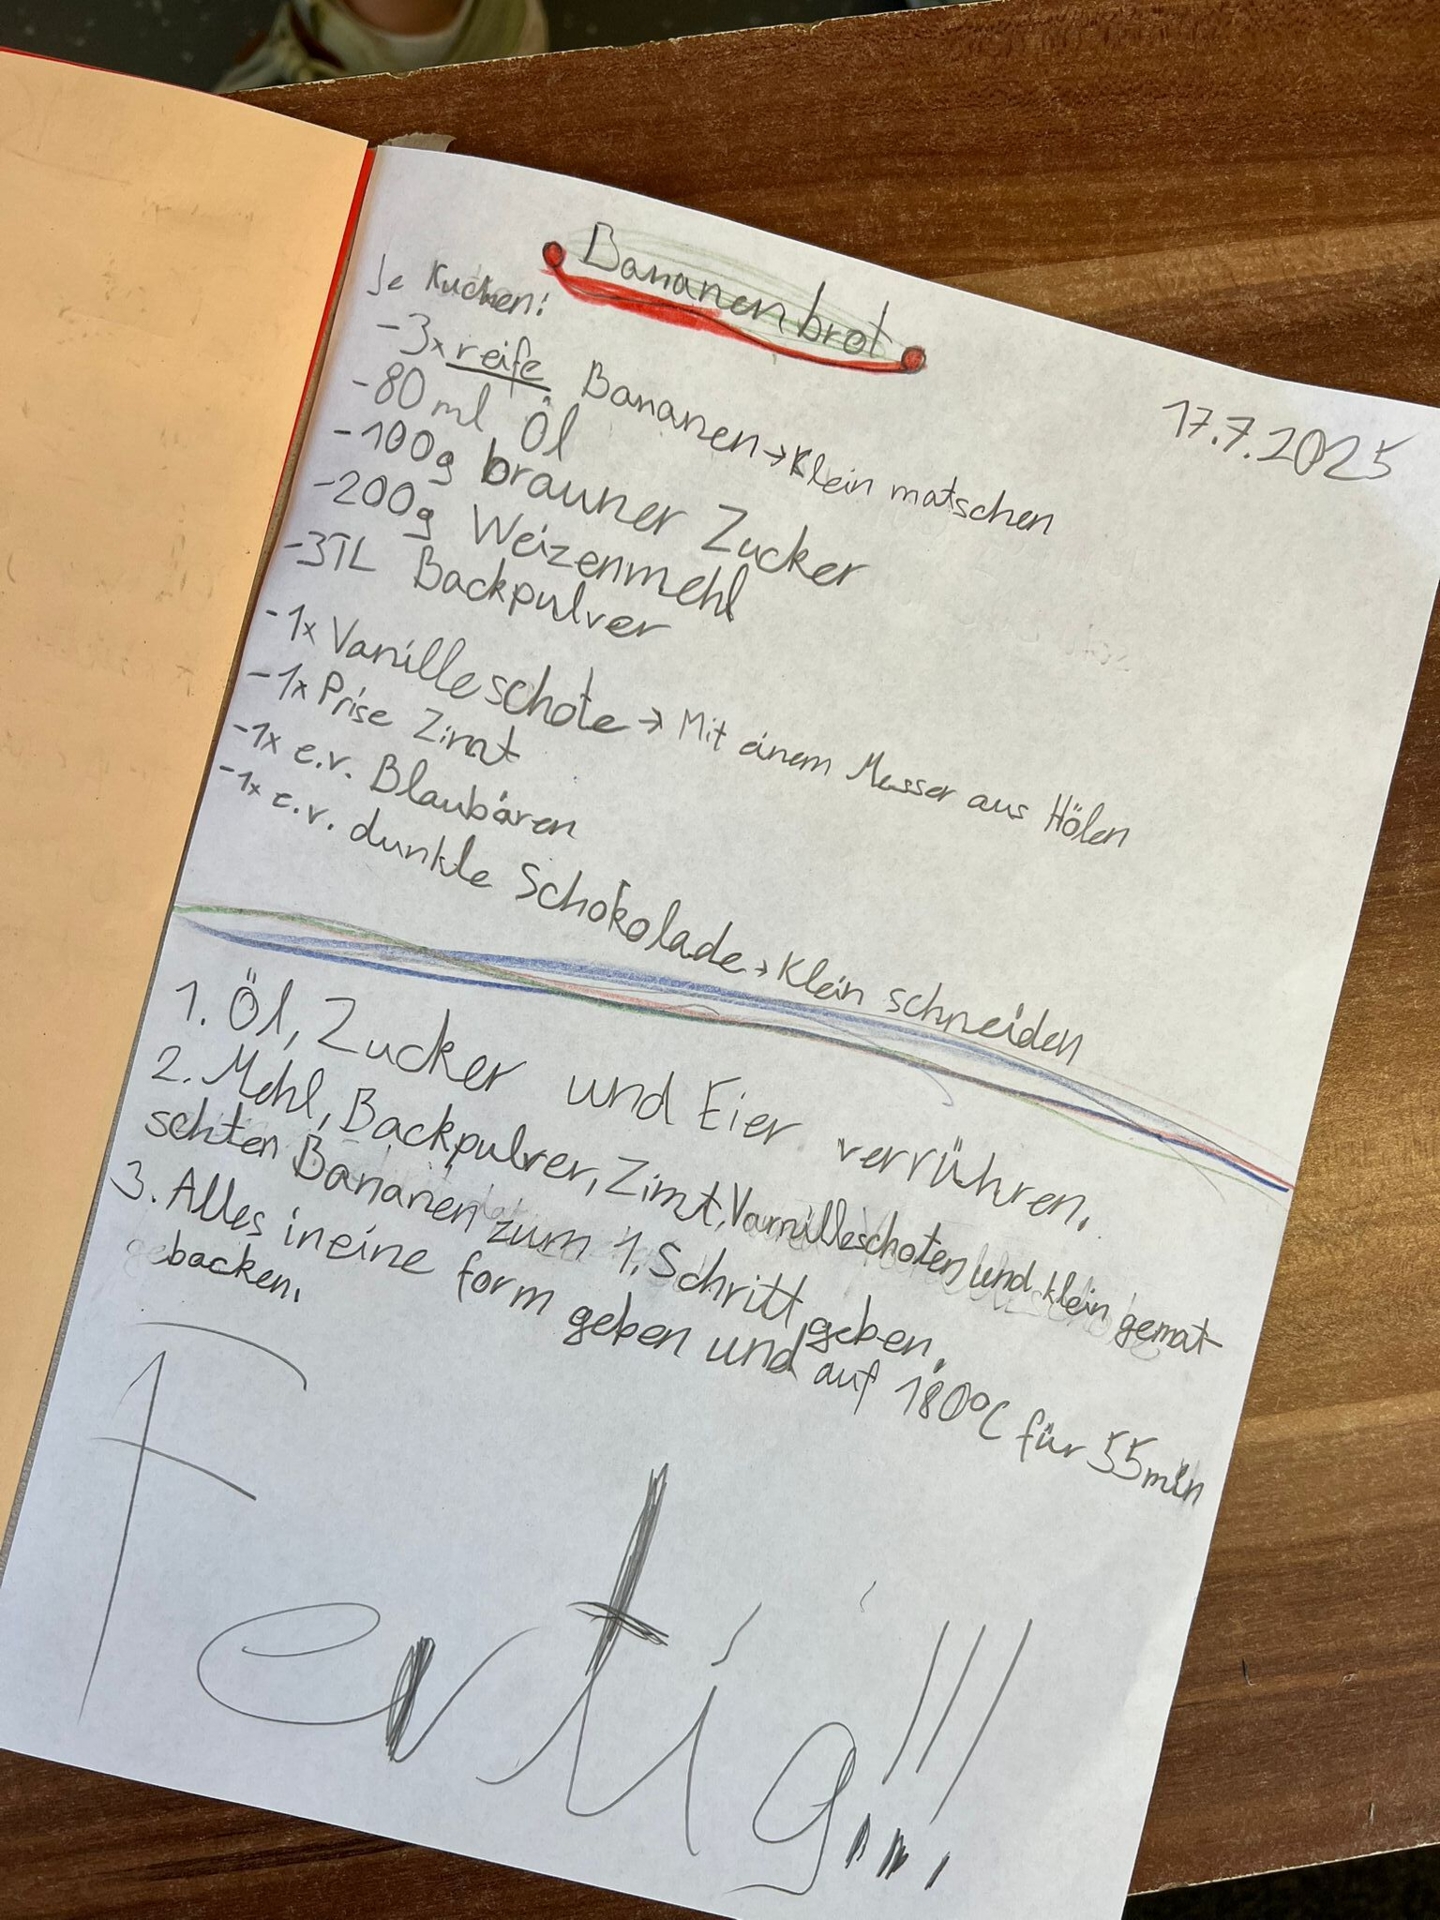 Bananenbrot
17.7.2025
Je Kuchen:
-3x reife Bananen → Klein matschen
-80 ml Öl
-100g brauner Zucker
-200g Weizenmehl
-3TL Backpulver
-1x Vanilleschote → Mit einem Messer aus Hölen
-1x Prise Zimt
-1x e.v. Blaubären
-1x e.v. dunkle Schokolade → Klein schneiden
1. Öl, Zucker und Eier verrühren.
2. Mehl, Backpulver, Zimt, Vannilleschoten und klein gemat-
schten Bananen zum 1. Schritt geben.
3. Alles in eine form geben und auf 180°C für 55min
backen.
Fertig!!!